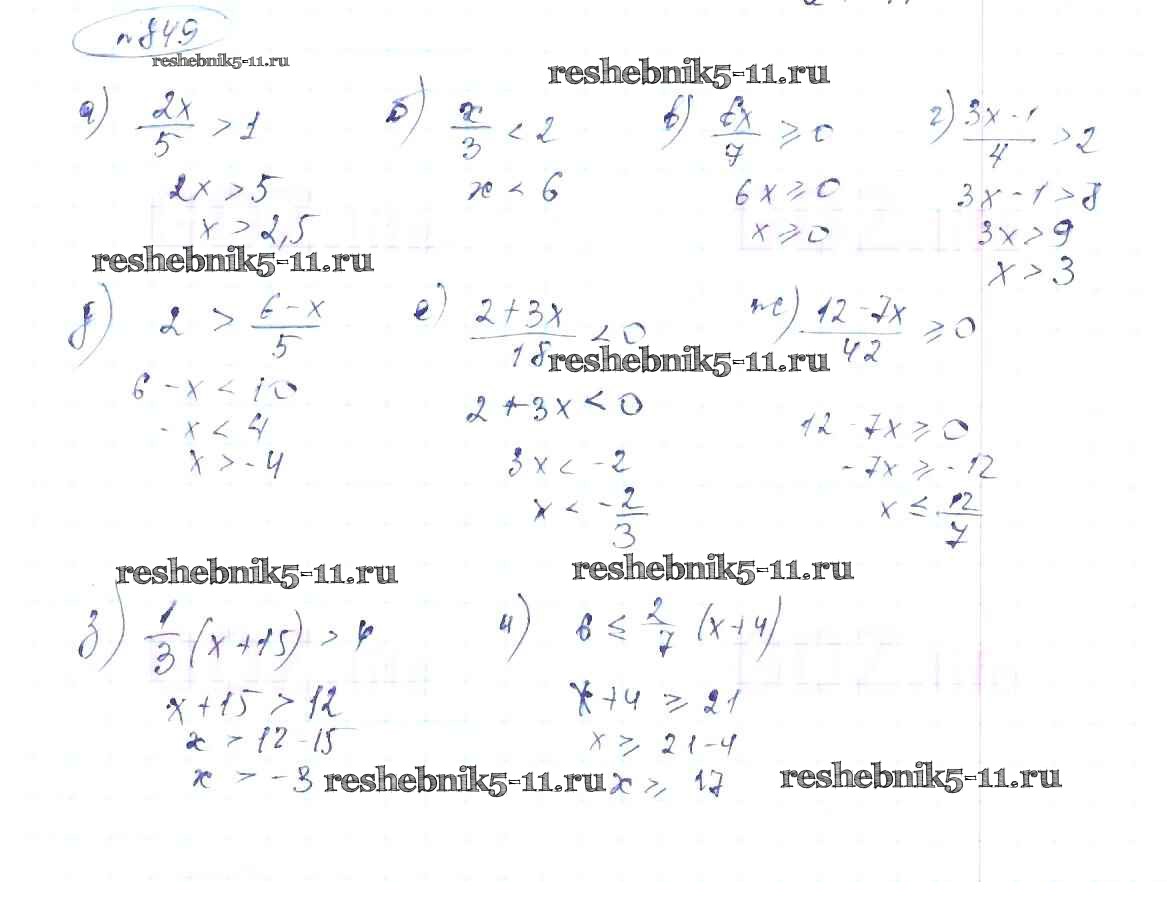 №849
reshebnik5-11.ru
reshebnik5-11.ru
а) 2x/5 > 1
2x > 5
x > 2,5
б) x/3 < 2
x < 6
в) 6x/7 ≥ 0
6x ≥ 0
x ≥ 0
г) 3x-1/4 > 2
3x-1 > 8
3x > 9
x > 3
reshebnik5-11.ru
д) 2 > 6-x/5
6-x < 10
-x < 4
x > -4
е) 2+3x/18 < 0
reshebnik5-11.ru
2+3x < 0
3x < -2
x < -2/3
ж) 12-7x/42 ≥ 0
12-7x ≥ 0
-7x ≥ -12
x ≤ 12/7
reshebnik5-11.ru
reshebnik5-11.ru
з) 1/3 (x+15) > 4
x+15 > 12
x > 12-15
x > -3
reshebnik5-11.ru
и) 6 ≤ 2/7 (x+4)
x+4 ≥ 21
x ≥ 21-4
x ≥ 17
reshebnik5-11.ru